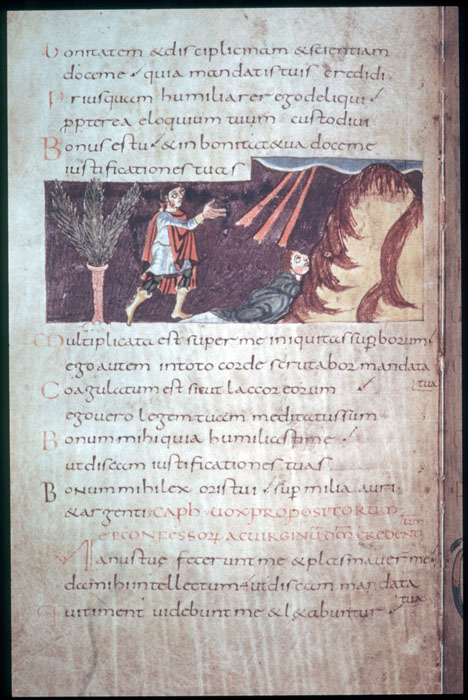 Bonitatem & disciplinam & scientiam
doceme quia mandatis tuis credidi
Priusquam humiliarer ego deliqui
ppterea eloquium tuum custodivi
Bonus es tu & in bonitate tua doceme
iustificationes tuas
Multiplicata est super me iniquitas supborum
ego autem in toto corde scrutabor mandata
tua
Coagulatum est sicut lac cor eorum
ego vero legem tuam meditatus sum
Bonum mihi quia humiliasti me
ut discam iustificationes tuas
Bonum mihi lex oris tui sup milia auri
& argenti CAPH VOX PROPOSITORUM
ET CONFESSOR AC VIRGINU DNM CREDENTI
Manus tue fecerunt me & plasmaver me
da mihi intellectum ut discam mandata
tua
Qui timent te videbunt me & l&abuntur